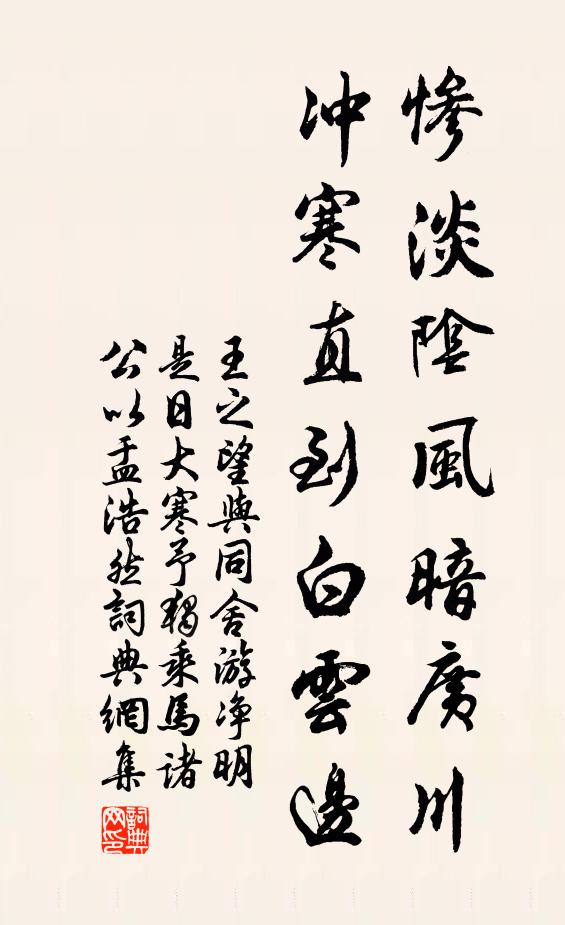 慘淡陰風暗廣川
冲寒直到白雲邊
王之望與同舍游净明
是日大寒予獨乘馬諸
公以孟浩然詞典網集
詞典网印